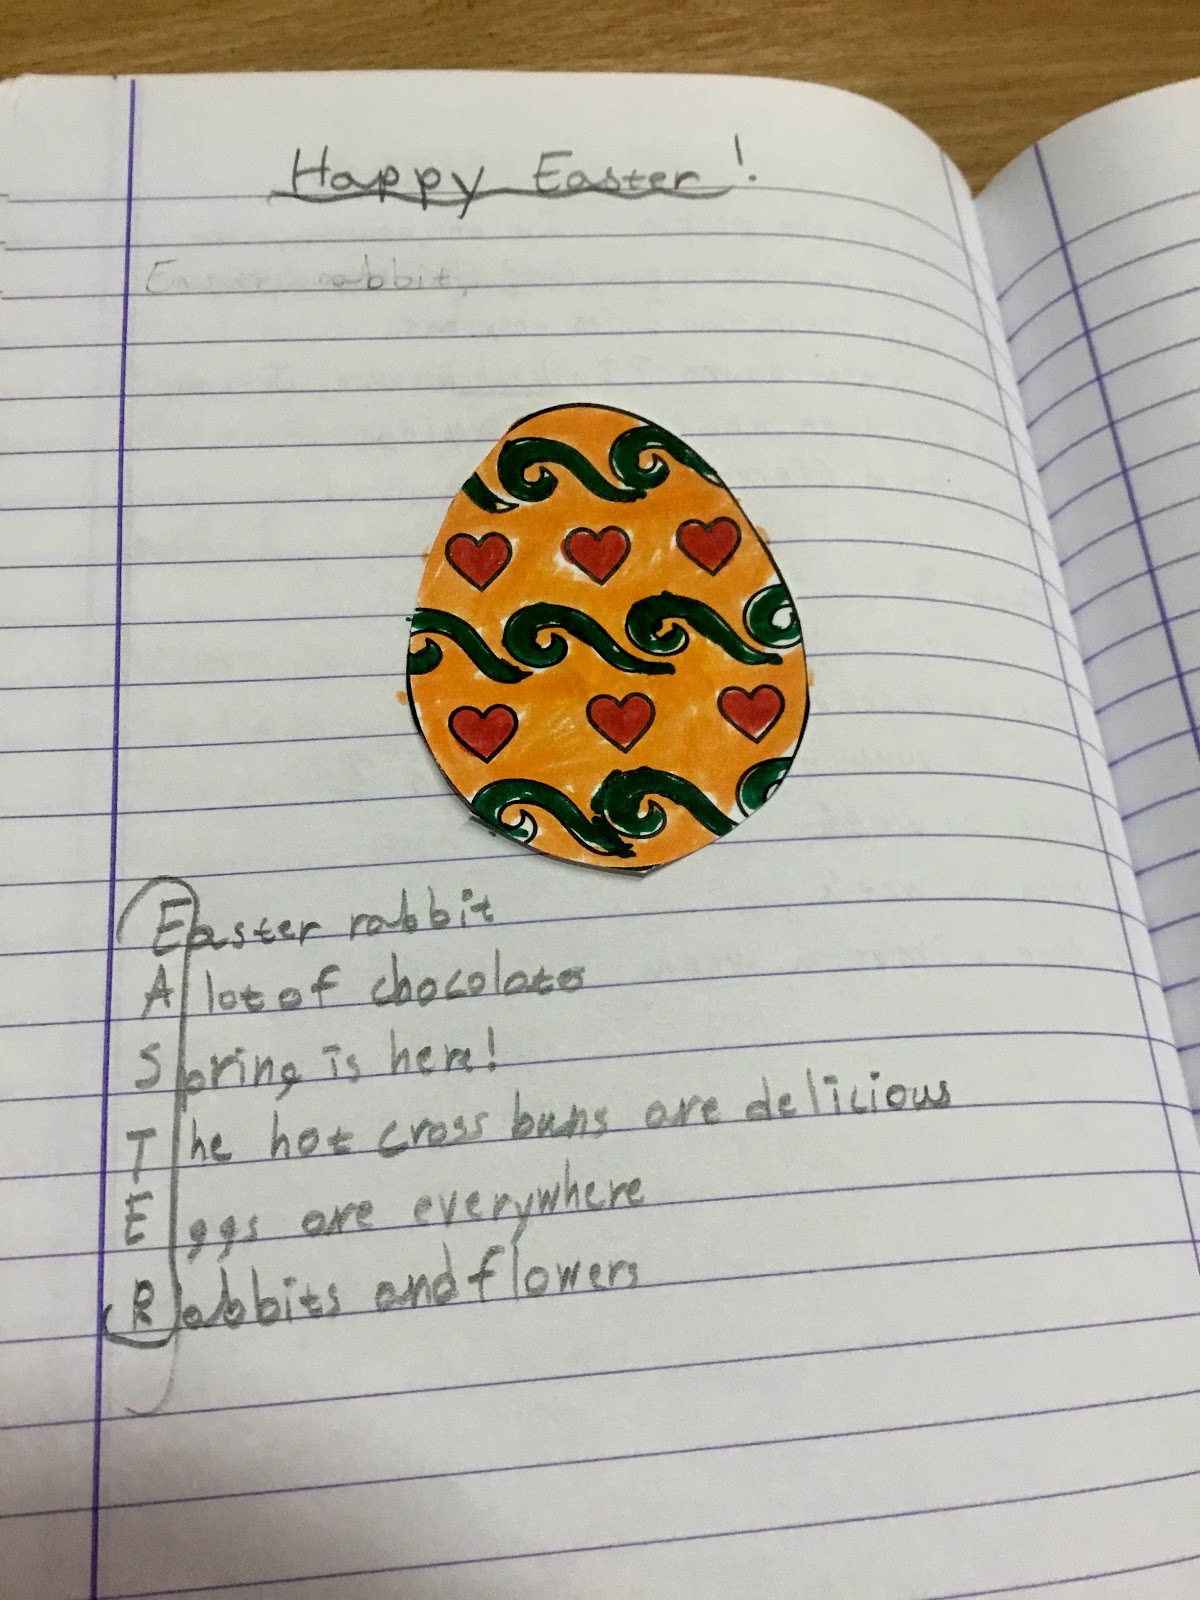 Happy Easter!
Easter rabbit,
Easter rabbit
A lot of chocolates
Spring is here!
The hot cross buns are delicious
Eggs are everywhere
Rabbits and flowers